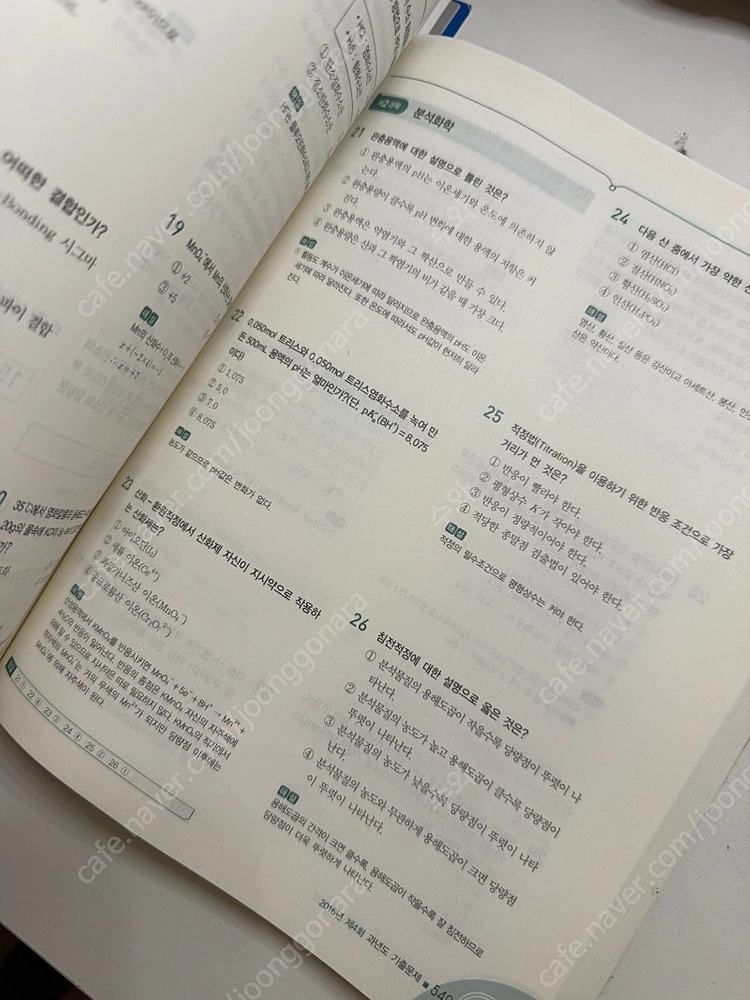 어떠한 결합인가?
19
① +2
③ +5
해설
∴ x = +7
제2과목 분석화학
21 완충용액에 대한 설명으로 틀린 것은?
① 완충용액의 pH는 이온세기와 온도에 의존하지 않
는다.
② 완충용량이 클수록 pH 변화에 대한 용액의 저항은 커
진다.
③ 완충용액은 약염기와 그 짝산으로 만들 수 있다.
④ 완충용량은 산과 그 짝염기의 비가 같을 때 가장 크다.
해설
① 활동도 계수가 이온세기에 따라 달라지므로 완충용액의 pH도 이온
세기에 따라 달라진다. 또한 온도에 따라서도 pH값이 현저히 달라
진다.
22 0.050mol 트리스와 0.050mol 트리스염화수소를 녹여 만
든 500mL 용액의 pH는 얼마인가?(단, pKa(BH⁺) = 8.075
이다)
① 1.075
② 5.0
③ 7.0
④ 8.075
해설
농도가 같으므로 pH값은 변화가 없다.
23 산화-환원적정에서 산화제 자신이 지시약으로 작용하
는 산화제는?
① 아이오딘(I₂)
② 세륨 이온(Ce⁴⁺)
③ 과망가니즈산 이온(MnO₄⁻)
④ 중크로뮴산 이온(Cr₂O₇²⁻)
해설
산성용액에서 KMnO₄를 반응시키면 MnO₄⁻ + 5e⁻ + 8H⁺ → Mn²⁺ +
4H₂O의 반응이 일어난다. 반응의 종점은 KMnO₄ 자신의 자주색에
의해 알 수 있으므로 지시약은 따로 필요하지 않다. KMnO₄의 적기에서
적자색의 MnO₄⁻는 거의 무색의 Mn²⁺가 되지만 당량점 이후에는
MnO₄⁻에 의해 자주색이 된다.
21 ① 22 ④ 23 ③ 24 ④ 25 ② 26 ①
24 다음 산 중에서 가장 약한 산
① 염산(HCl)
② 질산(HNO₃)
③ 황산(H₂SO₄)
④ 인산(H₃PO₄)
해설
염산, 황산, 질산 등은 강산이고 아세트산, 붕산, 인산
산은 약산이다.
25 적정법(Titration)을 이용하기 위한 반응 조건으로 가장
거리가 먼 것은?
① 반응이 빨라야 한다.
② 평형상수 K가 작아야 한다.
③ 반응이 정량적이어야 한다.
④ 적당한 종말점 검출법이 있어야 한다.
해설
적정의 필수조건으로 평형상수는 커야 한다.
26 침전적정에 대한 설명으로 옳은 것은?
① 분석물질의 용해도곱이 작을수록 당량점이 뚜렷이 나
타난다.
② 분석물질의 농도가 높고 용해도곱이 클수록 당량점이
뚜렷이 나타난다.
③ 분석물질의 농도가 낮을수록 당량점이 뚜렷이 나타
난다.
④ 분석물질의 농도와 무관하게 용해도곱이 크면 당량점
이 뚜렷이 나타난다.
해설
용해도곱의 간격이 크면 클수록, 용해도곱이 작을수록 잘 침전하므로
당량점이 더욱 뚜렷하게 나타난다.
2016년 제4회 과년도 기출문제
cafe.naver.com/joonggonara